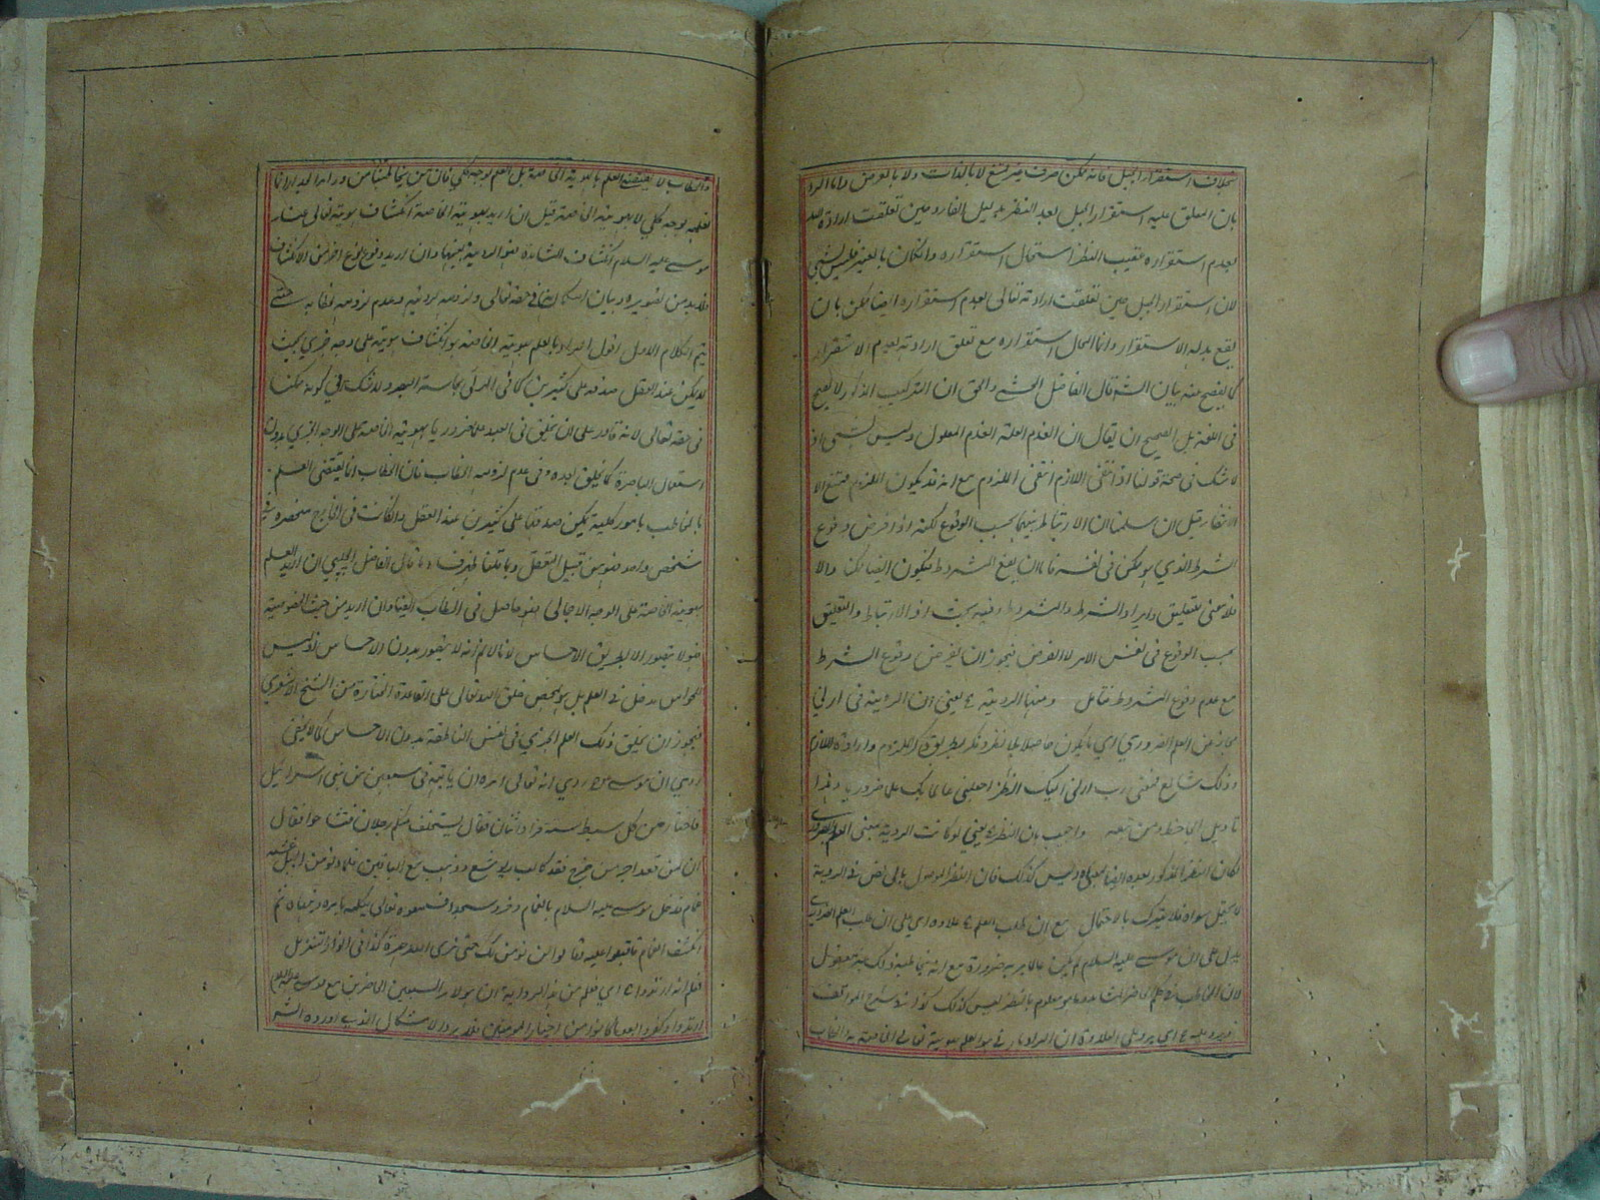 بخلاف استقرار الجبل فانه ممكن صرف غير ممتنع لا بالذات ولا بالعرض واما الرد
بان المعلق عليه استقرار الجبل بعد النظر بدليل الفاء وحين تعلقت ارادة الله
بعدم استقراره عقيب النظر استحال استقراره وان كان بالغير فليس بشيء
لان استقرار الجبل حين تعلقت ارادته تعالى بعدم استقراره ايضا ممكن بان
يقع بدله الاستقرار وانما المحال استقراره مع تعلق ارادته بعدم الاستقرار
كما يفصح عنه بيان الشه قال الفاضل المحشي والحق ان التركيب المذكور لا يصح
في اللغة بل الصحيح ان يقال ان انعدم العلة انعدم المعلول وليس بشيء اذ
لا شك في صحة قولنا اذ انتفى اللازم انتفى الملزوم مع انه قد يكون الملزوم ممتنع الا
الانفكاك قيل ان سلمنا ان الارتباط بينهما بحسب الوقوع لكنه اذا فرض وقوع
الشرط الذي هو ممكن في نفسه فاما ان يقع المشروط فيكون ايضا ممكنا والا
فلا معنى للتعليق وايراد الشرط والمشروط وفيه بحث اذ الارتباط والتعليق
بحسب الوقوع في نفس الامر لا الفرض فيجوز ان يفرض وقوع الشرط
مع عدم وقوع المشروط فتامل ومنها الرؤية ء يعني ان الرؤية في ارني
مجاز عن العلم الضروري اي ما يكون حاصلا بلا نظر وفكر بطريق ذكر الملزوم وارادة اللازم
وذلك شايع فمعنى رب ارني انظر اليك اجعلني عالما بك علما ضروريا وهذا
تاويل الجاحظ ومن تبعه واجيب بان النظر ء يعني لو كانت الرؤية بمعنى العلم الضروري
لكان النظر المذكور بعده ايضا بمعناه وليس كذلك فان النظر الموصول بالى نص في الرؤية
لا يحتمل سواه فلا يترك بالاحتمال مع ان طلب العلم ء علاوة اي على ان طلب العلم الضروري
يدل على ان موسى عليه السلام لم يكن عالما بربه ضرورة مع انه يخاطبه وذلك غير معقول
لان المخاطب في حكم الحاضر المشاهد وما هو معلوم بالنظر ليس كذلك كذا في شرح المواقف
ويرد عليه ء اي يرد على العلاوة ان المراد هو العلم بهويته تعالى الخاصة به والخطاب
والخطاب لا يقتضي العلم بالهوية الخاصة بل العلم بوجه كلي فان من يخاطبنا من وراء الجدار انما
نعلمه بوجه كلي لا بهويته الخاصة قيل ان اريد بهويته الخاصة انكشاف هويته تعالى عند
موسى عليه السلام انكشاف المشاهدة فهو الرؤية بعينها وان اريد وقوع نوع اخر من الانكشاف
فلابد من تصويره وبيان امكانه في حقه تعالى ولزومه لرؤيته وعدم لزومه لخطابه حتى
يتم الكلام الاول اقول المراد بالعلم بهويته الخاصة هو انكشاف هويته على وجه جزئي بحيث
لا يمكن عند العقل صدقه على كثيرين كما في المرئي بحاسة البصر ولا شك في كونه ممكنا
في حقه تعالى لانه قادر على ان يخلق في العبد علما ضروريا بهويته الخاصة على الوجه الجزئي بدون
استعمال الباصرة كما يخلق بعده وفي عدم لزومه الخطاب فان الخطاب انما يقتضي العلم
بالمخاطب بامور كلية يمكن صدقها على كثيرين عند العقل وان كانت في الخارج منحصرة في
شخص واحد فهو من قبيل التعقل
بهويته الخاصة على الوجه الاجمالي فهو حاصل في الخطاب ايضا وان اريد من حيث الخصوصية
فهو لا يتصور الا بطريق الاحساس لانا لا نم انه لا يتصور بدون الاحساس اذ ليس
للحواس مدخل في العلم بل هو بمحض خلق الله تعالى على القاعدة المختارة من الشيخ الاشعري
فيجوز ان يخلق ذلك العلم الجزئي في النفس الناطقة بدون الاحساس كما لا يخفى
روي ان موسى ء روي انه تعالى امره ان ياتيه في سبعين من بني اسرائيل
فاختار من كل سبط ستة فزاد اثنان فقال ليتخلف منكم رجلان فتشاحوا فقال
ان لمن قعد اجر من خرج فقعد كالب ويوشع وذهب مع الباقين فلما دنو من الجبل غشيه
غمام فدخل موسى عليه السلام بالغمام وخروا سجدا فسمعوه تعالى يكلمه بامره ونهيه ثم
انكشف الغمام فاقبلوا عليه وقالوا لن نؤمن لك حتى نرى الله جهرة كذا في انوار التنزيل
فعلم انه ارتدوا ء اي فعلم من هذه الرواية ان هؤلاء السبعين الحاضرين مع موسى عليه السلام
ارتدوا وكفروا بعد ما كانوا من اخيار المؤمنين فلا يرد الاشكال الذي اورده الشه